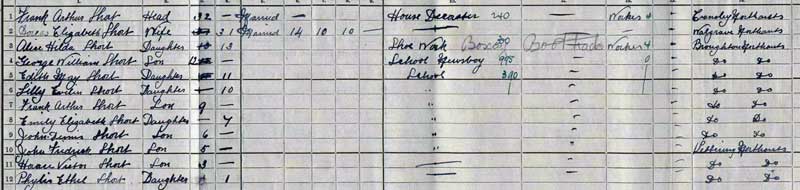 1 Frank Arthur Short Head 32 – Married House Decorator 240 – Worker 4 – Northants
2 Elizabeth Short Wife 31 Married 14 10 10 – – Walgrave Northants
3 Alice Hilda Short Daughter – 13 Shoe Work Boxing Boot Trade Worker 4 – Broughton Northants
4 George William Short Son 12 – School Newsboy 995 – 0 – do do
5 Edith May Short Daughter – 11 School 310 – – do do
6 Lilly Short Daughter – 10 " – – do do
7 Frank Arthur Short Son 9 – " – – do do
8 Emily Elizabeth Short Daughter – 7 " – – do do
9 John Short Son 6 – " – – do do
10 John Fredrick Short Son 5 – " – – Kettering Northants
11 Victor Short Son 3 – – – – do do
12 Ethel Short Daughter 1 – – – do do